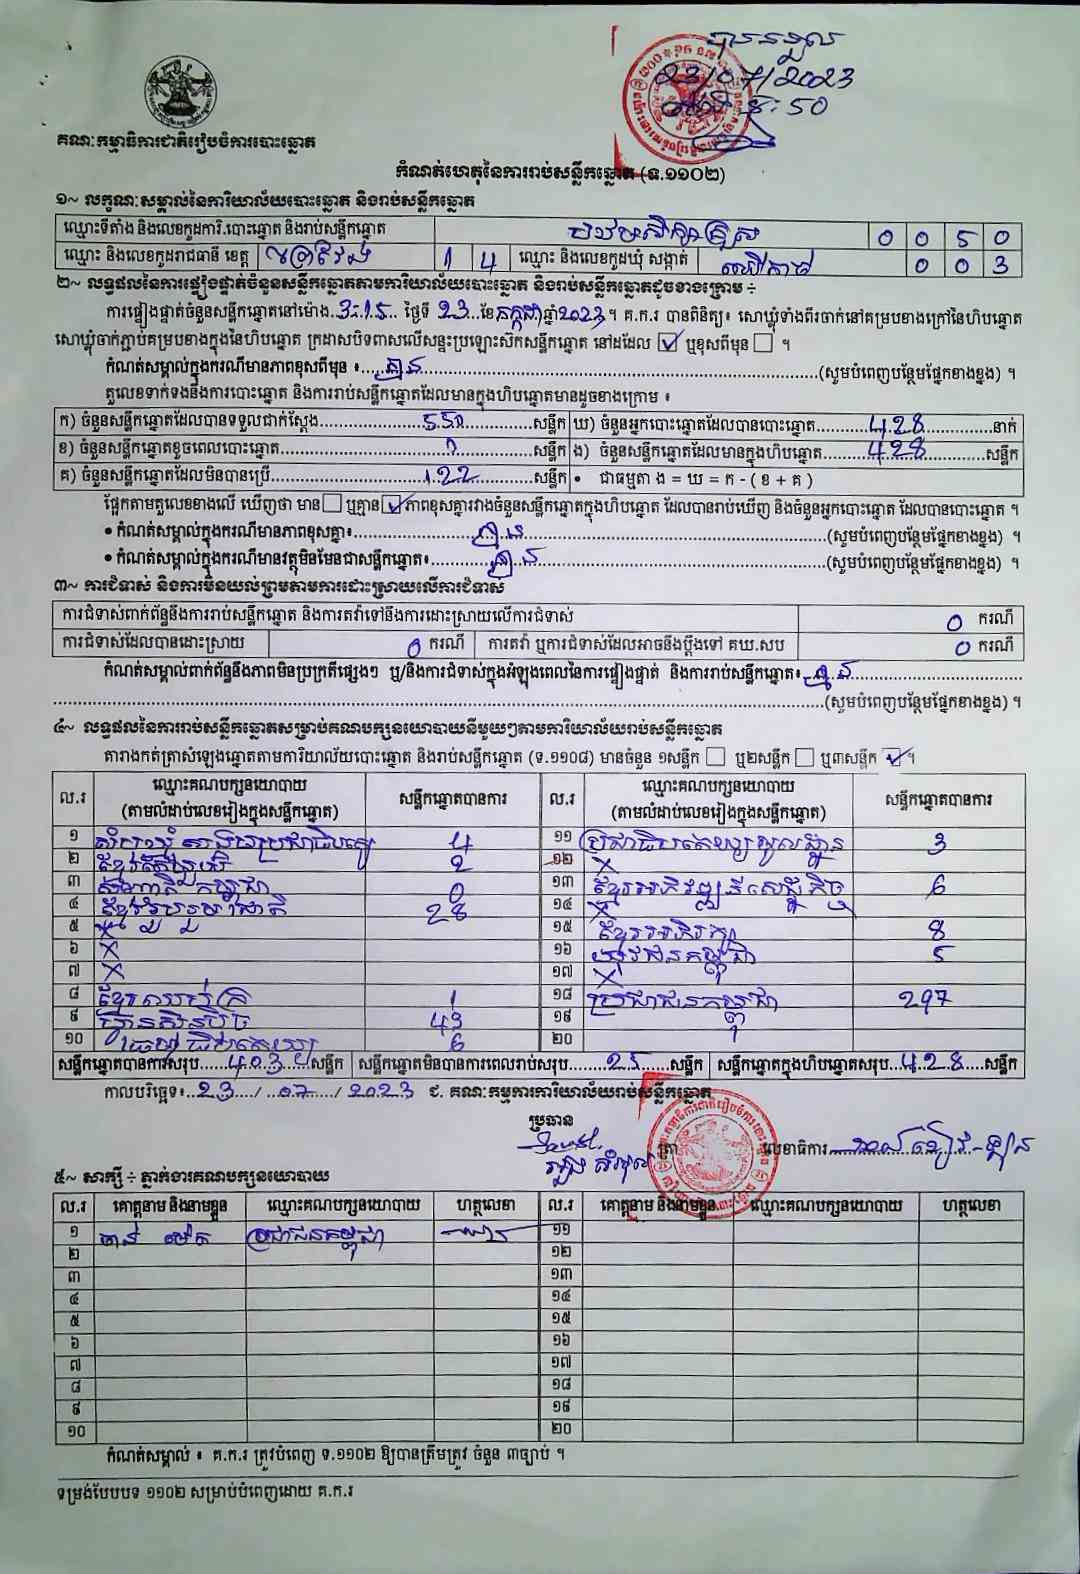 បានទទួល
23/07/2023
ម៉ោង ៥:50
គណៈកម្មាធិការជាតិរៀបចំការបោះឆ្នោត
កំណត់ហេតុនៃការរាប់សន្លឹកឆ្នោត (ទ.១១០២)
១~ លក្ខណៈសម្គាល់នៃការិយាល័យបោះឆ្នោត និងរាប់សន្លឹកឆ្នោត
ឈ្មោះទីតាំង និងលេខកូដការិ.បោះឆ្នោត និងរាប់សន្លឹកឆ្នោត 0 0 5 0
ឈ្មោះ និងលេខកូដរាជធានី ខេត្ត ព្រៃវែង 1 4 ឈ្មោះ និងលេខកូដឃុំ សង្កាត់ 0 0 3
២~ លទ្ធផលនៃការផ្ទៀងផ្ទាត់ចំនួនសន្លឹកឆ្នោតតាមការិយាល័យបោះឆ្នោត និងរាប់សន្លឹកឆ្នោតដូចខាងក្រោម ÷
ការផ្ទៀងផ្ទាត់ចំនួនសន្លឹកឆ្នោតនៅម៉ោង..3:15.. ថ្ងៃទី 23 ខែ កក្កដា ឆ្នាំ 2023។ គ.ក.រ បានពិនិត្យ៖ សោឃ្លុំទាំងពីរចាក់នៅគម្របខាងក្រៅនៃហិបឆ្នោត
សោឃ្លុំចាក់ភ្ជាប់គម្របខាងក្នុងនៃហិបឆ្នោត ក្រដាសបិទពាសលើសន្ទះប្រឡោះស៊កសន្លឹកឆ្នោត នៅដដែល ☑ ឬខុសពីមុន ☐ ។
កំណត់សម្គាល់ក្នុងករណីមានភាពខុសពីមុន ៖.....គ្មាន.....(សូមបំពេញបន្ថែមផ្នែកខាងខ្នង) ។
តួលេខទាក់ទងនឹងការបោះឆ្នោត និងការរាប់សន្លឹកឆ្នោតដែលមានក្នុងហិបឆ្នោតមានដូចខាងក្រោម ៖
ក) ចំនួនសន្លឹកឆ្នោតដែលបានទទួលជាក់ស្តែង.....550.....សន្លឹក ឃ) ចំនួនអ្នកបោះឆ្នោតដែលបានបោះឆ្នោត.....428.....នាក់
ខ) ចំនួនសន្លឹកឆ្នោតខូចពេលបោះឆ្នោត.....0.....សន្លឹក ង) ចំនួនសន្លឹកឆ្នោតដែលមានក្នុងហិបឆ្នោត.....428.....សន្លឹក
គ) ចំនួនសន្លឹកឆ្នោតដែលមិនបានប្រើ.....122.....សន្លឹក • ជាធម្មតា ង = ឃ = ក - ( ខ + គ )
ផ្អែកតាមតួលេខខាងលើ ឃើញថា មាន ☐ ឬគ្មាន ☑ ភាពខុសគ្នារវាងចំនួនសន្លឹកឆ្នោតក្នុងហិបឆ្នោត ដែលបានរាប់ឃើញ និងចំនួនអ្នកបោះឆ្នោត ដែលបានបោះឆ្នោត ។
• កំណត់សម្គាល់ក្នុងករណីមានភាពខុសគ្នា៖.....គ្មាន.....(សូមបំពេញបន្ថែមផ្នែកខាងខ្នង) ។
• កំណត់សម្គាល់ក្នុងករណីមានវត្ថុមិនមែនជាសន្លឹកឆ្នោត៖.....គ្មាន.....(សូមបំពេញបន្ថែមផ្នែកខាងខ្នង) ។
៣~ ការជំទាស់ និងការមិនយល់ព្រមតាមការដោះស្រាយលើការជំទាស់
ការជំទាស់ពាក់ព័ន្ធនឹងការរាប់សន្លឹកឆ្នោត និងការតវ៉ាទៅនឹងការដោះស្រាយលើការជំទាស់ 0 ករណី
ការជំទាស់ដែលបានដោះស្រាយ 0 ករណី ការតវ៉ា ឬការជំទាស់ដែលអាចនឹងប្តឹងទៅ គឃ.សប 0 ករណី
កំណត់សម្គាល់ពាក់ព័ន្ធនឹងភាពមិនប្រក្រតីផ្សេងៗ ឬ/និងការជំទាស់ក្នុងអំឡុងពេលនៃការផ្ទៀងផ្ទាត់ និងការរាប់សន្លឹកឆ្នោត៖..គ្មាន.....
.....(សូមបំពេញបន្ថែមផ្នែកខាងខ្នង) ។
៤~ លទ្ធផលនៃការរាប់សន្លឹកឆ្នោតសម្រាប់គណបក្សនយោបាយនីមួយៗតាមការិយាល័យរាប់សន្លឹកឆ្នោត
តារាងកត់ត្រាសំឡេងឆ្នោតតាមការិយាល័យបោះឆ្នោត និងរាប់សន្លឹកឆ្នោត (ទ.១១០៨) មានចំនួន ១សន្លឹក ☐ ឬ២សន្លឹក ☐ ឬ៣សន្លឹក ☑។
ល.រ ឈ្មោះគណបក្សនយោបាយ (តាមលំដាប់លេខរៀងក្នុងសន្លឹកឆ្នោត) សន្លឹកឆ្នោតបានការ ល.រ ឈ្មោះគណបក្សនយោបាយ (តាមលំដាប់លេខរៀងក្នុងសន្លឹកឆ្នោត) សន្លឹកឆ្នោតបានការ
១ 4 ១១ ប្រជាធិបតេយ្យមូលដ្ឋាន 3
២ 2 ១២ X
៣ កម្ពុជា 0 ១៣ ខ្មែរអភិវឌ្ឍន៍សេដ្ឋកិច្ច 6
៤ ខ្មែររួបរួមជាតិ 28 ១៤ X
៥ X ១៥ ខ្មែរអភិរក្ស 8
៦ X ១៦ យុវជនកម្ពុជា 5
៧ X ១៧ X
៨ ខ្មែរឈប់ក្រ 1 ១៨ ប្រជាជនកម្ពុជា 297
៩ ហ្វ៊ុនស៊ិនប៉ិច 43 ១៩
១០ 6 ២០
សន្លឹកឆ្នោតបានការសរុប...403...សន្លឹក សន្លឹកឆ្នោតមិនបានការពេលរាប់សរុប...25...សន្លឹក សន្លឹកឆ្នោតក្នុងហិបឆ្នោតសរុប..428...សន្លឹក
កាលបរិច្ឆេទ៖..23.../..07.../ 2023 ជ. គណៈកម្មការការិយាល័យរាប់សន្លឹកឆ្នោត
ប្រធាន
ត្រា លេខាធិការ
៥~ សាក្សី ÷ ភ្នាក់ងារគណបក្សនយោបាយ
ល.រ គោត្តនាម និងនាមខ្លួន ឈ្មោះគណបក្សនយោបាយ ហត្ថលេខា ល.រ គោត្តនាម និងនាមខ្លួន ឈ្មោះគណបក្សនយោបាយ ហត្ថលេខា
១ ប្រជាជនកម្ពុជា ១១
២ ១២
៣ ១៣
៤ ១៤
៥ ១៥
៦ ១៦
៧ ១៧
៨ ១៨
៩ ១៩
១០ ២០
កំណត់សម្គាល់ ៖ គ.ក.រ ត្រូវបំពេញ ទ.១១០២ ឱ្យបានត្រឹមត្រូវ ចំនួន ៣ច្បាប់ ។
ទម្រង់បែបបទ ១១០២ សម្រាប់បំពេញដោយ គ.ក.រ